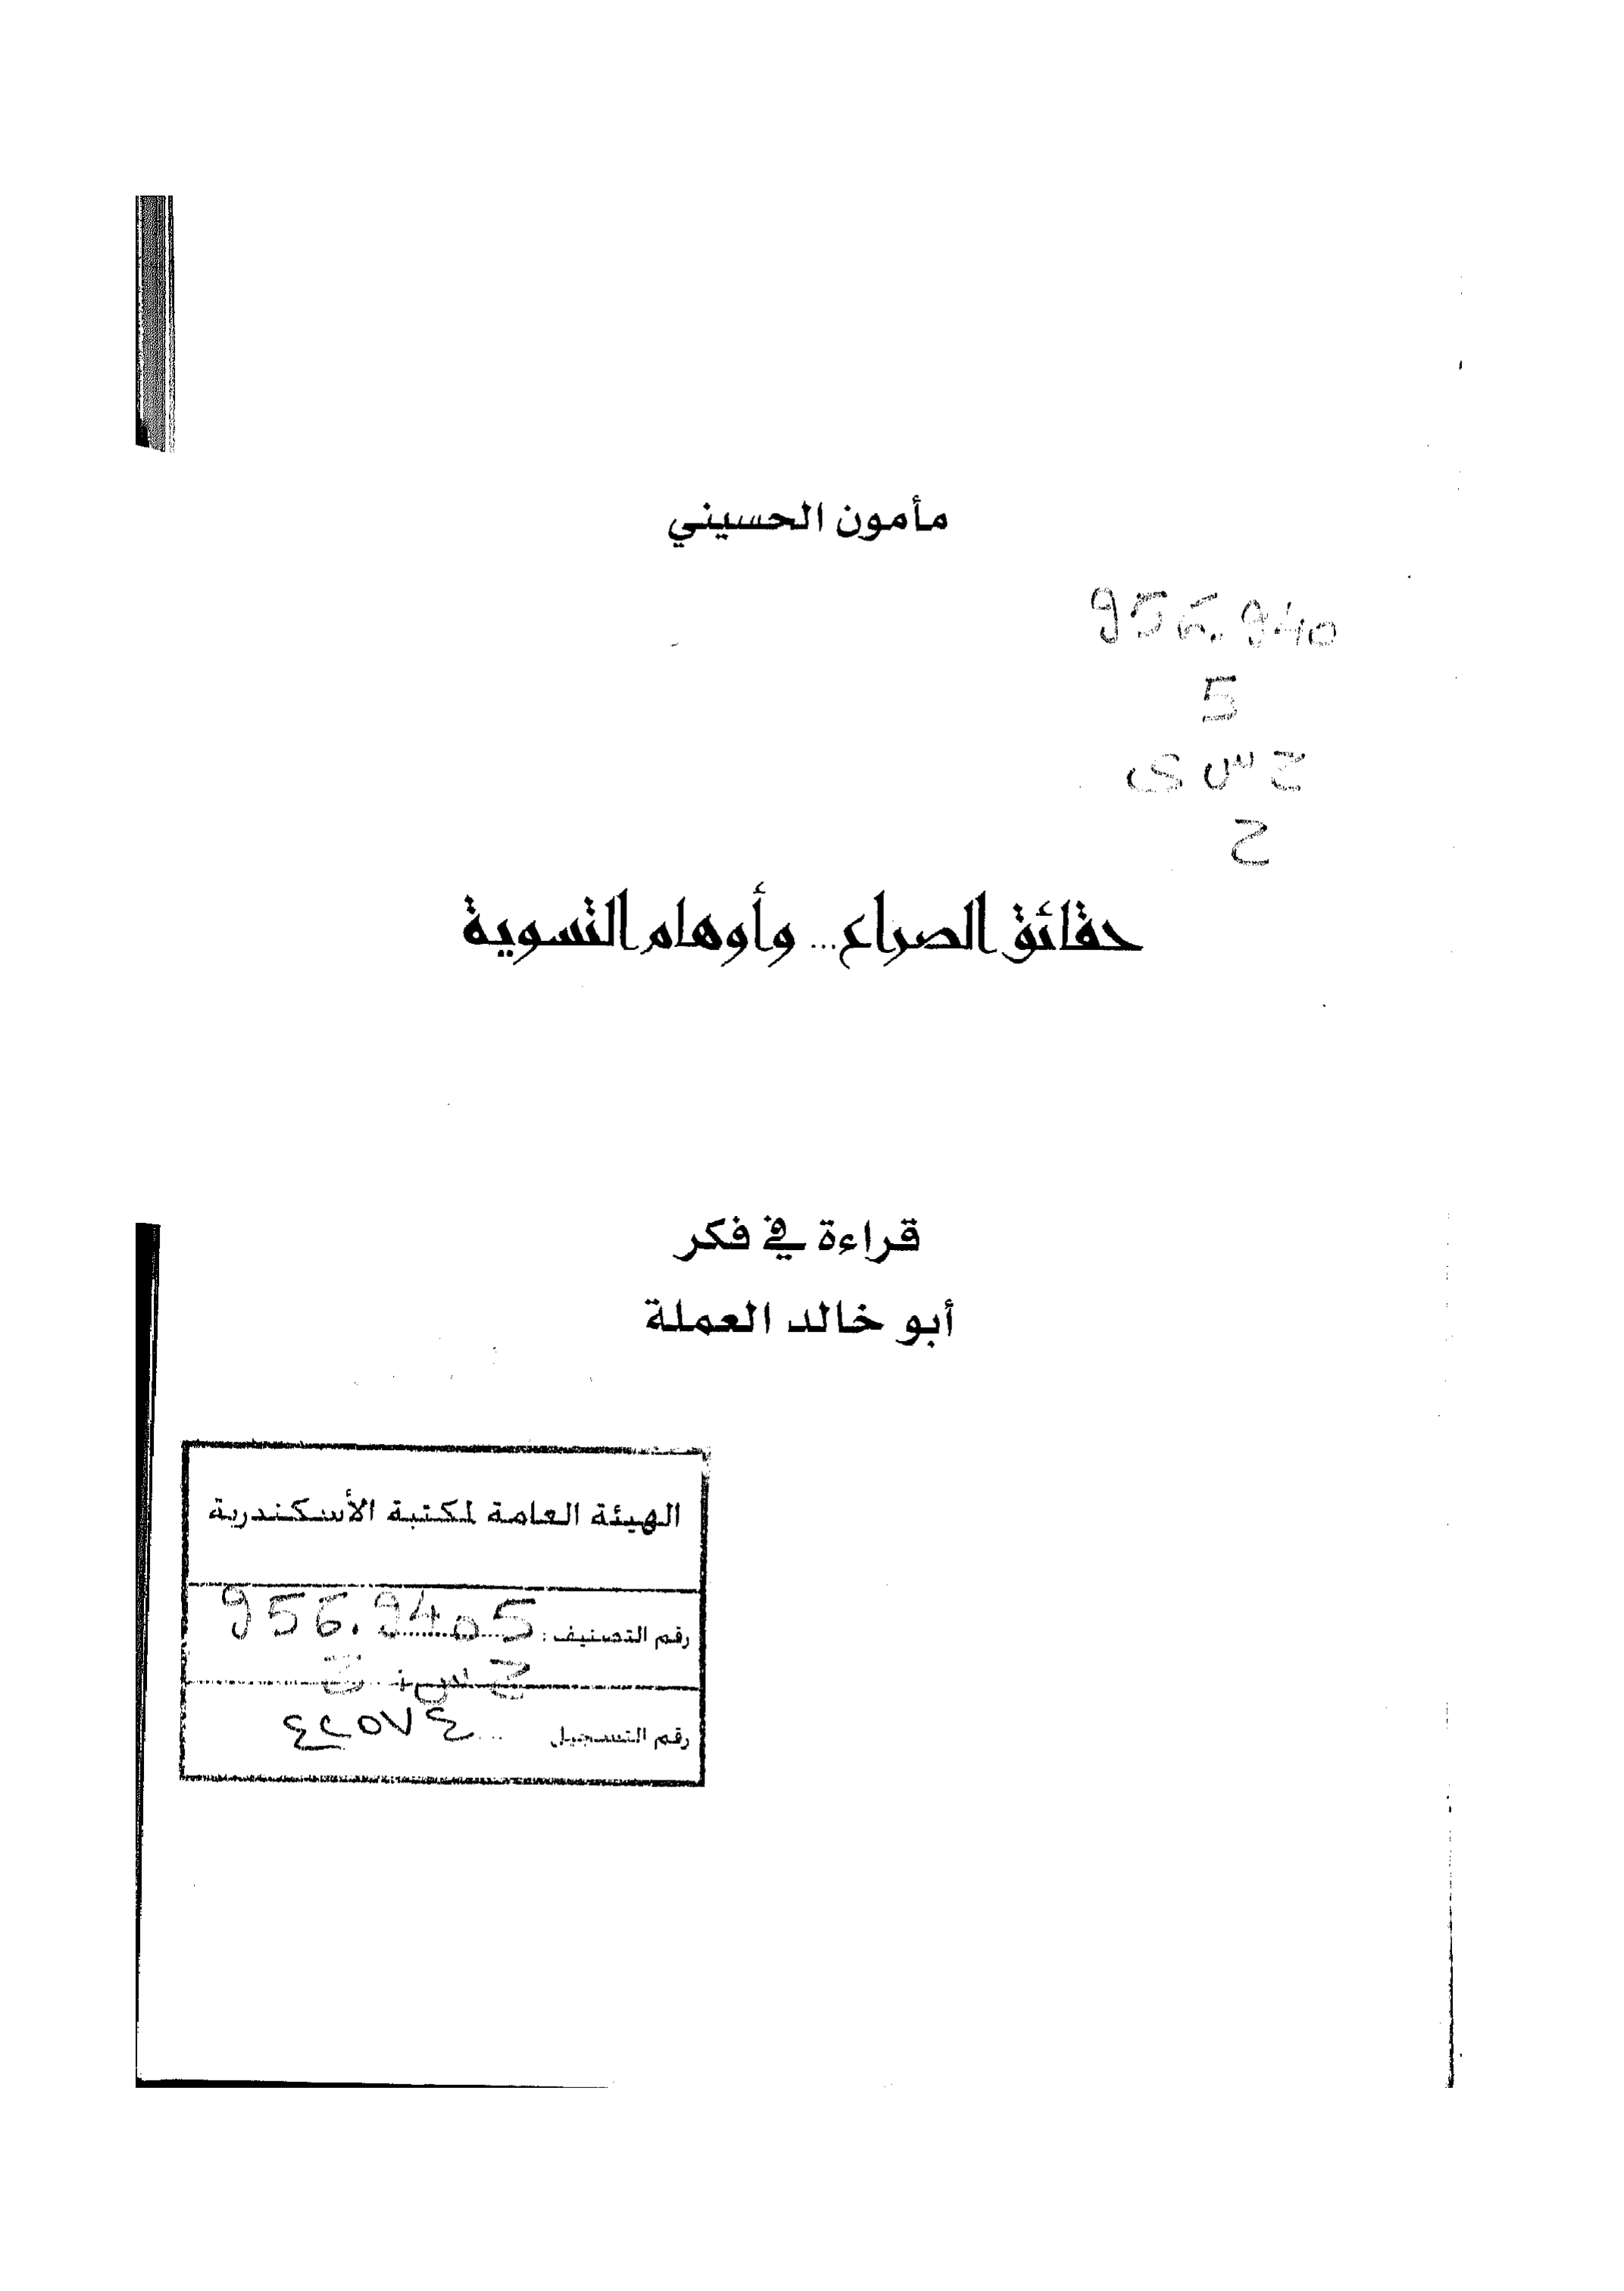 مأمون الحسيني
956.940
5
ح س ى
ح
حقائق الصراع... وأوهام التسوية
قراءة في فكر
أبو خالد العملة
الهيئة العامة لمكتبة الأسكندرية
رقم التصنيف: 956.9405
رقم التسجيل ... ٤٢٥٧٤